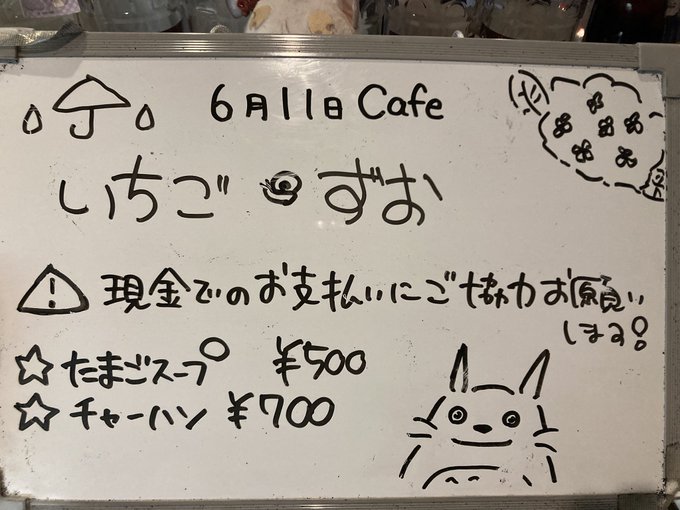 6月11日 Cafe
いちご ずお
現金でのお支払いにご協力お願い
します!
☆たまごスープ ¥500
☆チャーハン ¥700